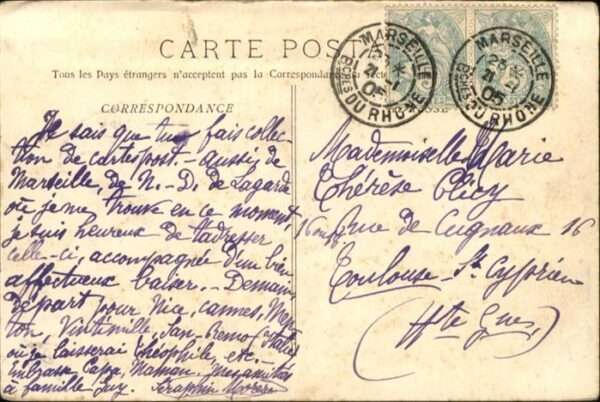 CARTE POST
Tous les Pays étrangers n'acceptent pas la Correspondance au recto
CORRESPONDANCE
MARSEILLE
21
05
DU RHÔNE
MARSEILLE
21
05
DU RHÔNE
Je sais que tu fais collec-
tion de cartes post. - aussi, de
Marseille, de N.-D. de Lagarde
où je me trouve en ce moment,
je suis heureux de t'adresser
celle-ci, accompagnée d'un bien
affectueux baiser. - Demain
départ pour Nice, Cannes, Men
ton, Vintimille, San-Remo (Italie)
où je laisserai Théophile, etc. -
Embrasse Maman,
à famille Séraphin
Mademoiselle Marie
Thérèse
16 Rue de Cugnaux 16
Toulouse - St Cyprien
(Hte Gne)